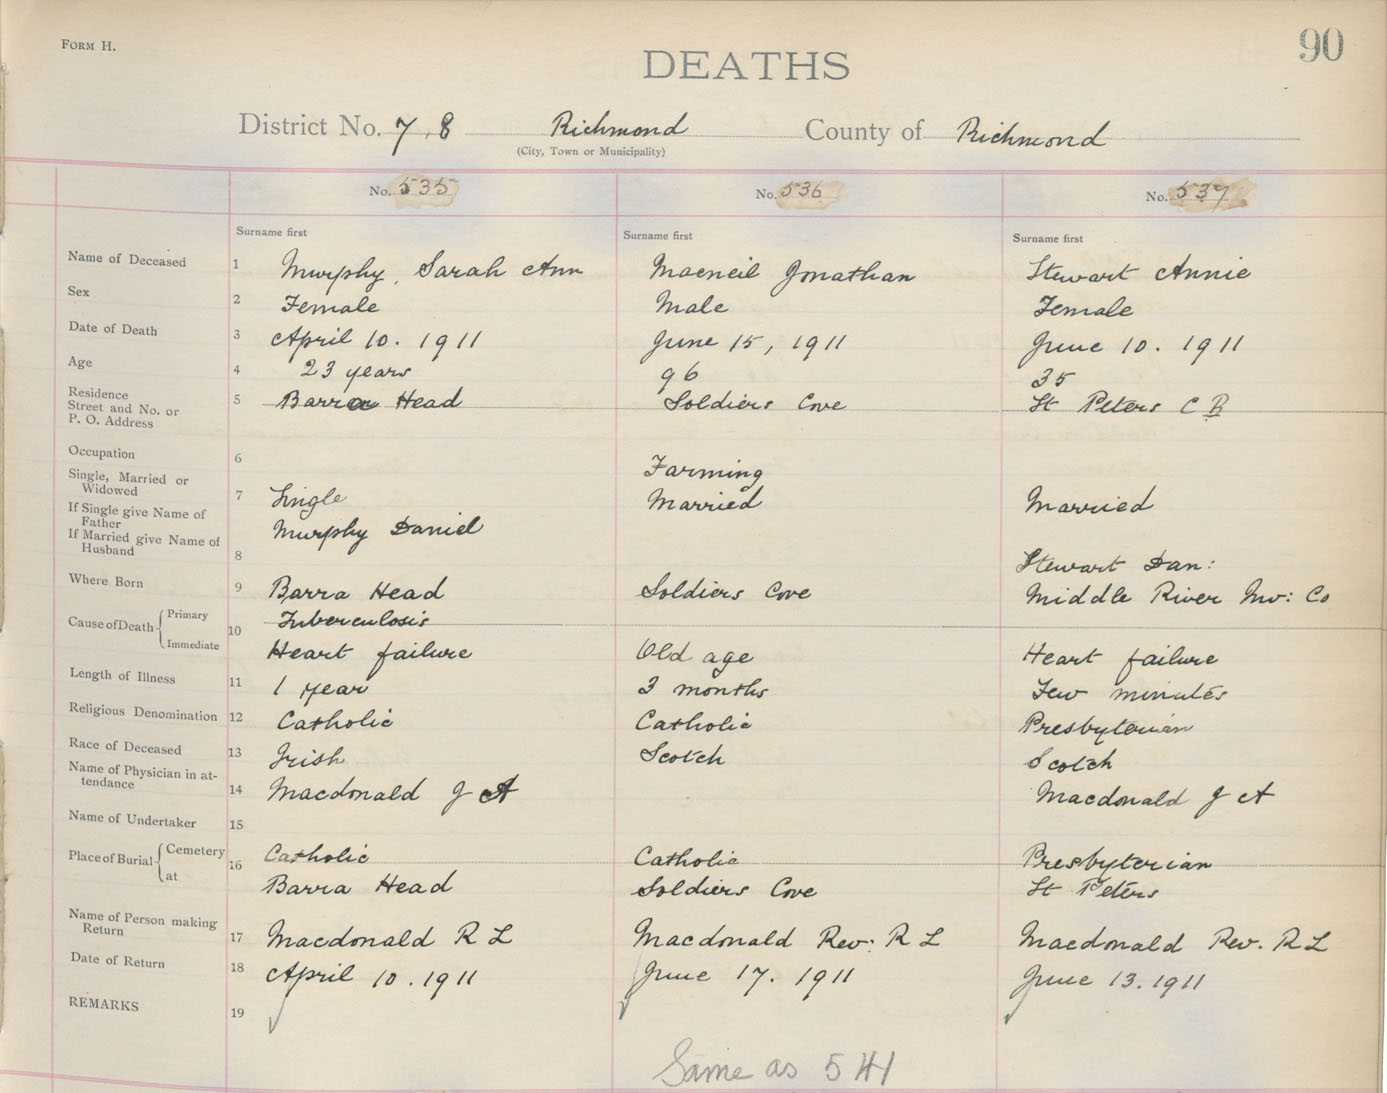 FORM H.
90
DEATHS
District No. 7, 8 Richmond County of Richmond
(City, Town or Municipality)
No. 535 No. 536 No. 537
Surname first Surname first Surname first
Name of Deceased 1 Murphy, Sarah Ann Macneil Jonathan Stewart Annie
Sex 2 Female Male Female
Date of Death 3 April 10. 1911 June 15, 1911 June 10. 1911
Age 4 23 years 96 35
Residence
Street and No. or
P. O. Address 5 Barra Head Soldiers Cove St Peters C B
Occupation 6 Farming
Single, Married or
Widowed 7 Single Married Married
If Single give Name of
Father Murphy Daniel
If Married give Name of
Husband 8 Stewart Dan:
Where Born 9 Barra Head Soldiers Cove Middle River Inv: Co
Cause of Death Primary 10 Tuberculosis
Immediate Heart failure Old age Heart failure
Length of Illness 11 1 year 3 months Few minutes
Religious Denomination 12 Catholic Catholic Presbyterian
Race of Deceased 13 Irish Scotch Scotch
Name of Physician in at-
tendance 14 Macdonald J A Macdonald J A
Name of Undertaker 15
Place of Burial Cemetery 16 Catholic Catholic Presbyterian
at Barra Head Soldiers Cove St Peters
Name of Person making
Return 17 Macdonald R L Macdonald Rev: R L Macdonald Rev. R L
Date of Return 18 April 10. 1911 June 17. 1911 June 13. 1911
REMARKS 19
Same as 541